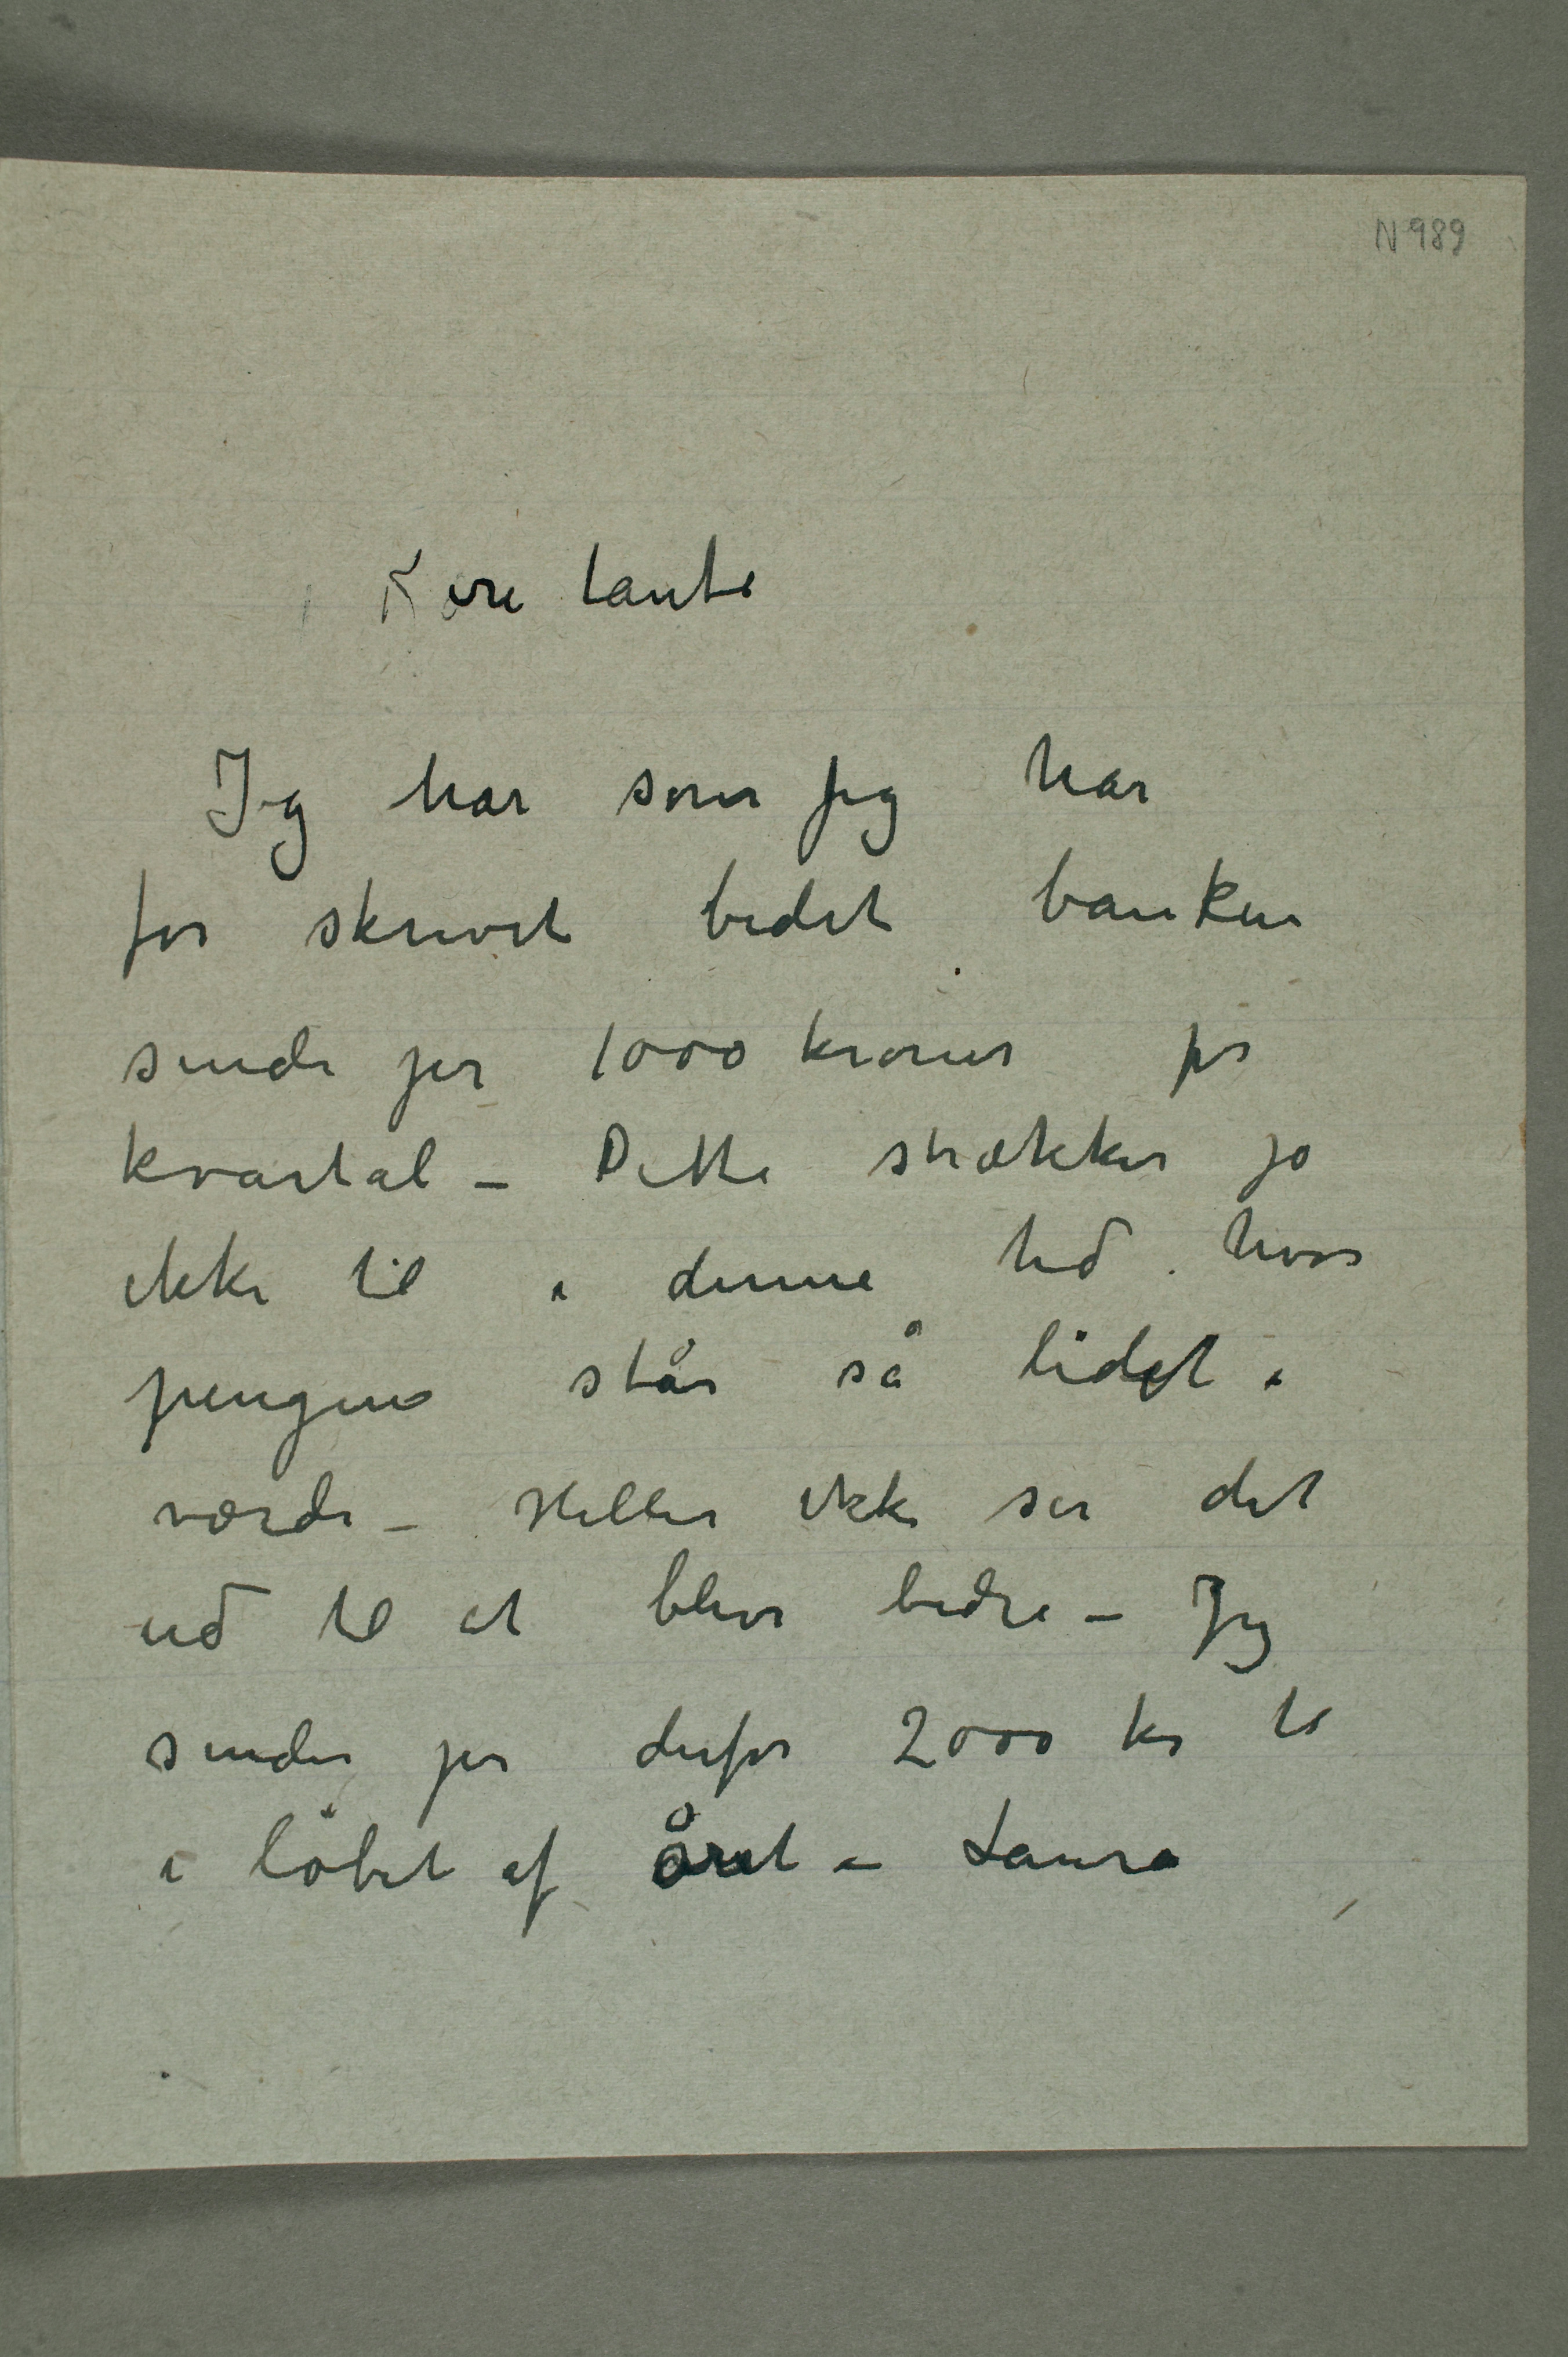 N 989
Kære tante
Jeg har som jeg har
før skrevet bedet banken
sende jer 1000 kroner pr
kvartal – Dette strækker jo
ikke til i denne tid hvor
pengene står så lidet i
værdi – Heller ikke ser det
ud til at blive bedre – Jeg
sender jer derfor 2000 kr til
i löbet af året – Laura